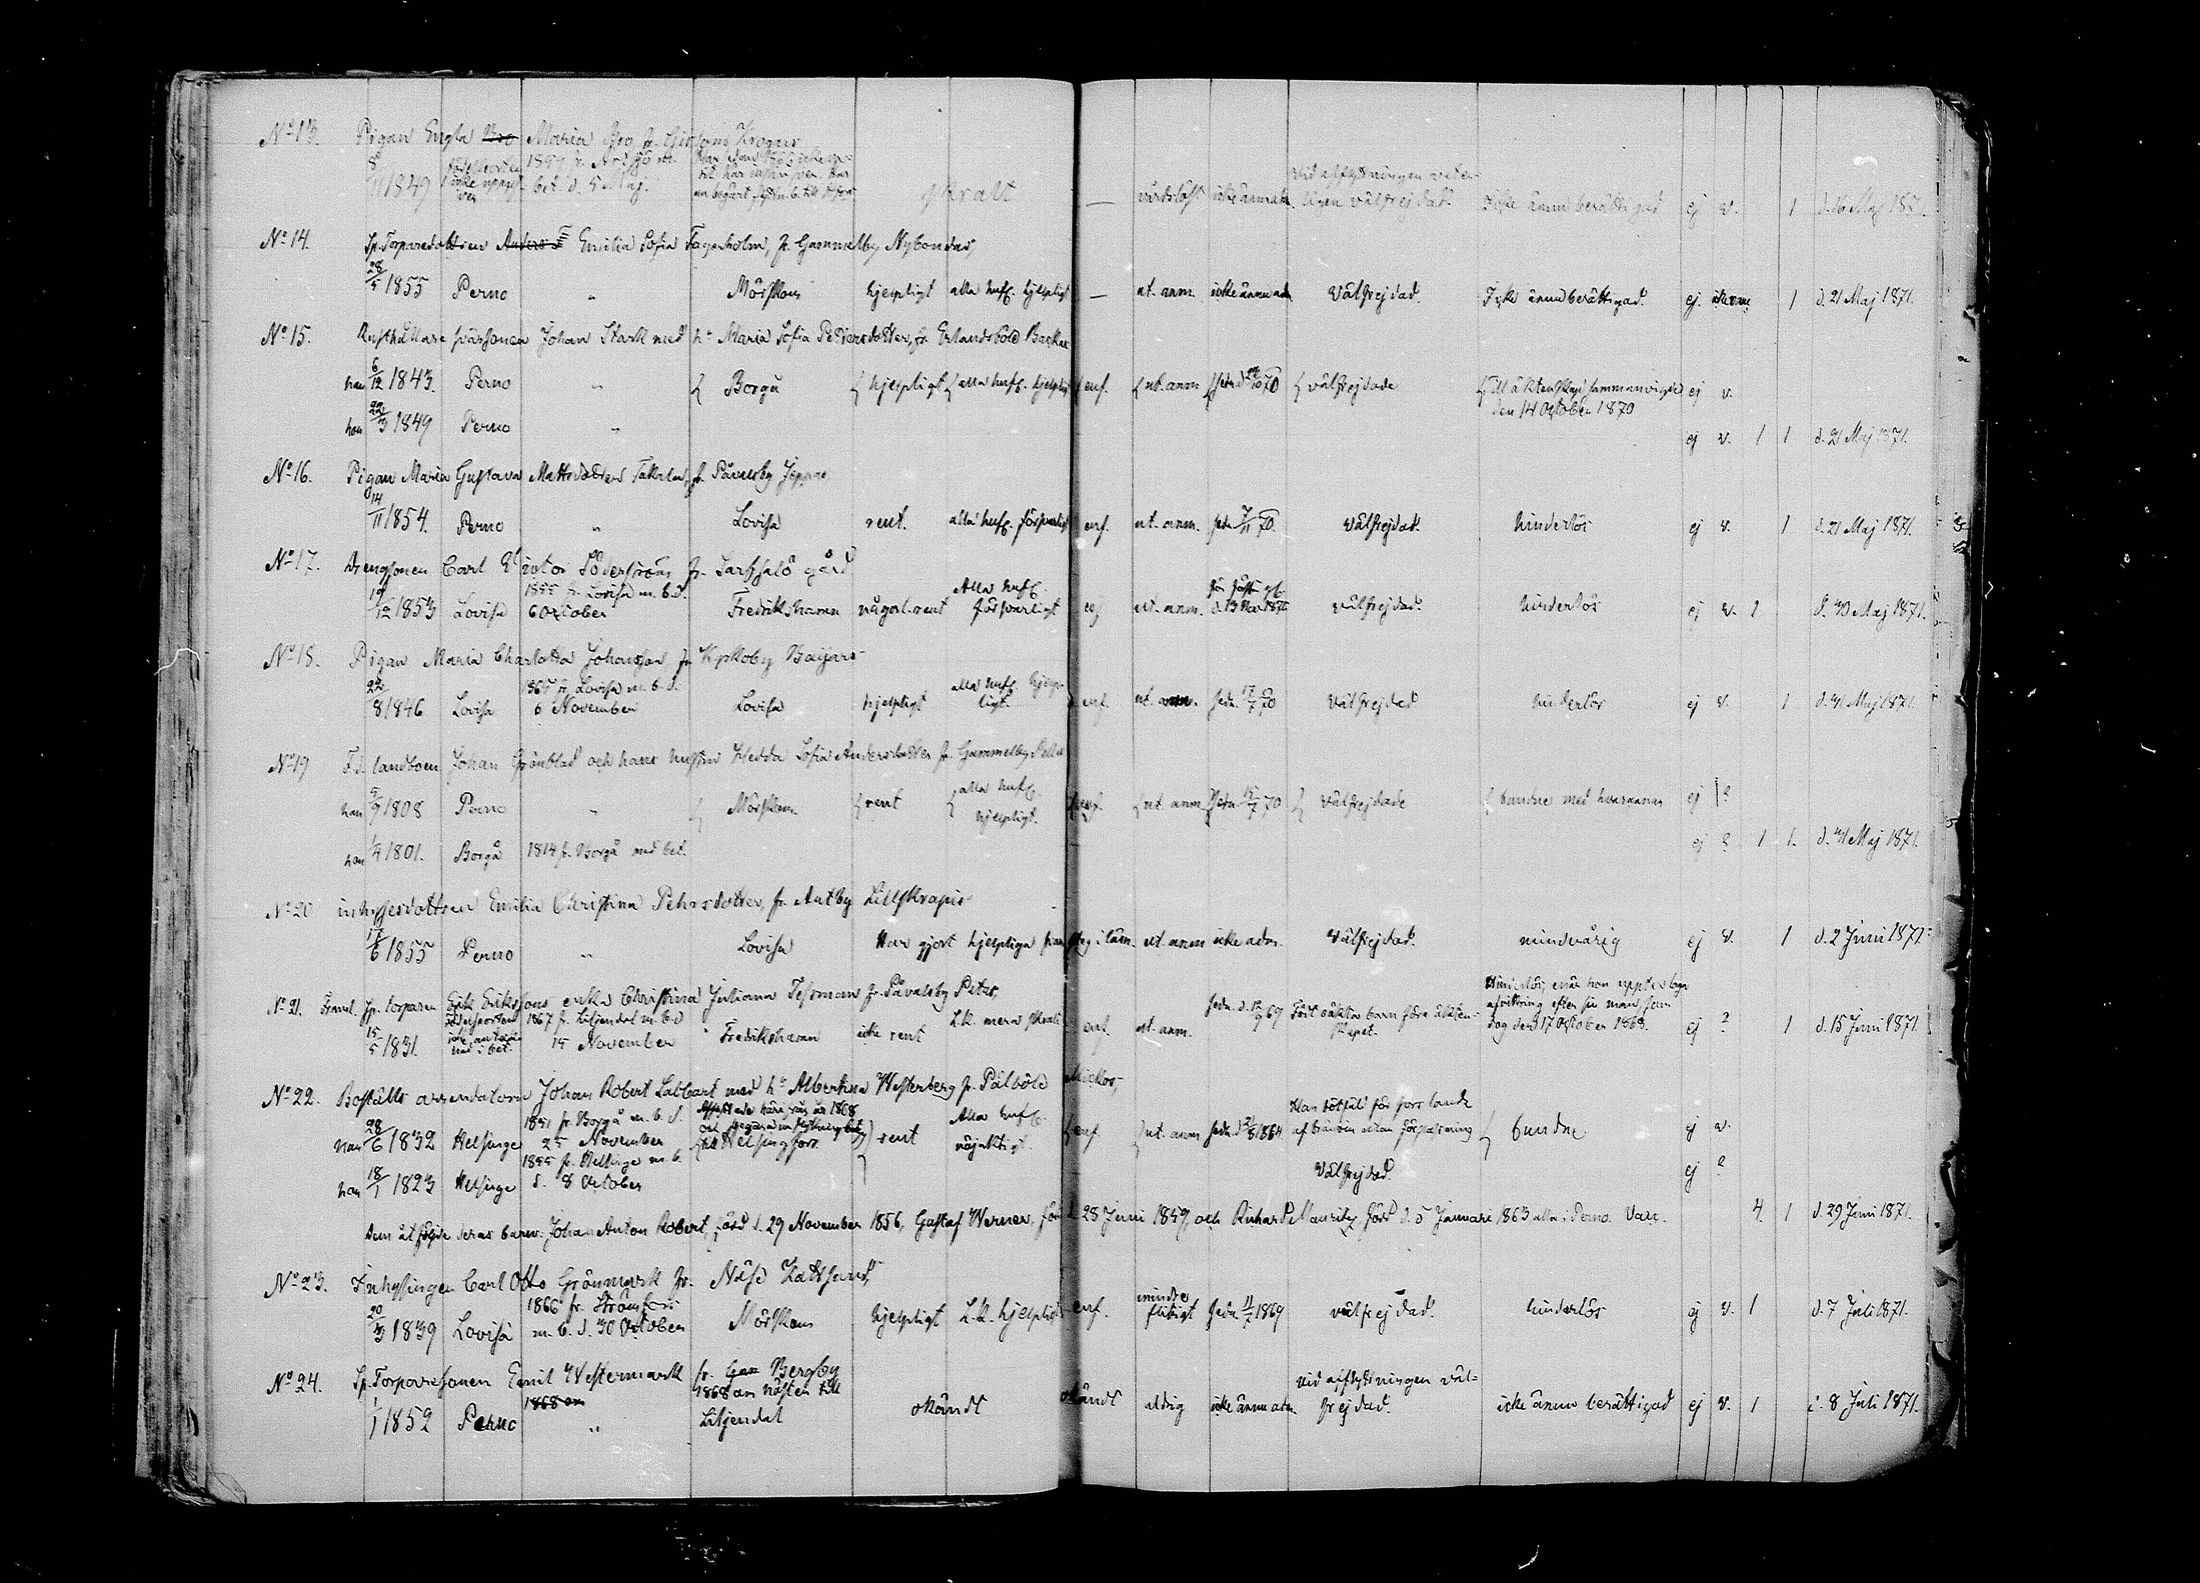 No 13. Pigan Engla Maria Bro fr.
8/11 1849 1859 fr. bet. d. 5 Maj. skralt — vårdslöst icke ännu adm. Vid afflyttningen veterligen välfrejdad. Icke ännu berättigad ej v. 1 d. 16 Maj 1871.
No 14. Sp. Torparedottren Emilia Sofia Fagerholm, fr. Gammelby Nybondas,
28/5 1855 Perno " Mörskom hjelpligt alla hufst. hjelpligt — nt. anm. icke ännu adm. Välfrejdad. Icke ännu berättigad. ej. 1 d. 21 Maj 1871.
No 15. Rusthållare sonen Johan Stark med h. Maria Sofia Pettersdotter, fr. Erlandsböle Backas
han 6/12 1843. Perno " Borgå hjelpligt alla hufst. hjelpligt enf. nt. anm. sedn. 70 välfrejdade Till äktenskap sammanvigde ej v.
den 14 October 1870
hon 22/3 1849 Perno " ej v. 1 1 d. 21 Maj 1871.
No 16. Pigan Maria Gustava Mattsdotter fr. Påvalsby Jeppas
14/11 1854. Perno " Lovisa rent. alla hufst. försvarligt enf. nt. anm. sedn 7/11 70. Välfrejdad. hinderlös ej v. 1 d. 21 Maj 1871.
No 17. Drengsonen Carl Victor Söderström fr. Sarfsalö gård
1855 fr. Lovisa m. b. d. Alla hufst.
/12 1853 Lovisa 6 October Fredrikshamn någorl. rent försvarligt ej nt. anm. d. 13 Nov 1870 Välfrejdad. hinderlös ej v. 1 d. 30 Maj 1871.
No 18. Pigan Maria Charlotta Johansson fr. Kyrkoby Baijars
fr. Lovisa m. b. d. alla hufst. hjelp-
22/8 1846 Lovisa 6 November Lovisa hjelpligt ligt. enf. nt. anm. sedn. 17/7 70 Välfrejdad hinderlös ej v. 1 d. 31 Maj 1871.
No 19 F.d. landboen Johan Grönblad och hans hustru Hedda Sofia Andersdotter fr. Gammelby
han 5/9 1808 Perno " Mörskom rent alla hufst. hjelpligt. enf. nt anm sedn 70 Välfrejdade bundne med hvarannan ej ?
hon 1/4 1801. Borgå 1814 fr. Borgå med bet. ej ? 1 1. d. 31 Maj 1871.
No 20 inhysesdottren Emilia Christina Pehrsdotter, fr. Antby Lillskrapis
17/6 1855 Perno " Lovisa Har gjort hjelpliga framsteg i läsn. nt. anm icke adm. Välfrejdad. minderårig ej v. 1 d. 2 Juni 1871.
No 21. Framl. sp. torparen Erik Erikssons enka Christina Juliana Tessman fr. Påvalsby Peters,
15/5 1831. 1867 fr. Liljendal m. b. d 15 November " Fredrikshamn icke rent L.k. mera skralt enf. nt. anm. sedn. d. 69 Född oäkta barn före äktenskapet. Hinderlös, enär hon uppteslags afvittring efter sin man som dog den 17 October 1868. ej ? 1 d. 15 Juni 1871.
No 22. Boställs arrendatorn Johan Robert Labbart med h. Albertina Westerberg fr. Pålböle Mickos,
han 28/6 1832 Helsinge 1851 fr. Borgå m. b. d. 25 November till Helsingfors rent Alla hufst. nöjaktigt. enf. nt. anm sedn. 1864 Han bötfäld för forslande af bränvin utan förpassning bundne ej v.
hon 18/1 1823 Helsinge 1855 fr. Helsinge m. b. d. 8 October Välfrejdad. ej ?
Dem åtfölja deras barn: Johan Anton Robert, född d. 29 November 1856, Gustaf Werner, född 28 Juni 1859, och Richard Mauritz född d. 5 Januari 1863 alla i Perno. Vacc. 4. 1 d. 29 Juni 1871.
No 23. Inhysingen Carl Otto Grönmark fr. Näse
20/3 1839 Lovisa 1866 fr. Strömfors m. b. d. 30 October Mörskom hjelpligt L.k. hjelpligt enf. mindre flitigt sedn 1869 välfrejdad. hinderlös ej v. 1 d. 7 Juli 1871.
No 24. Sp. Torparesonen Emil Westermark fr. Bergby
1/1 1852 Perno " 1868 om hösten till Liljendal okändt okändt aldrig icke ännu adm. Vid afflyttningen välfrejdad. icke ännu berättigad ej v. 1 d. 8 Juli 1871.